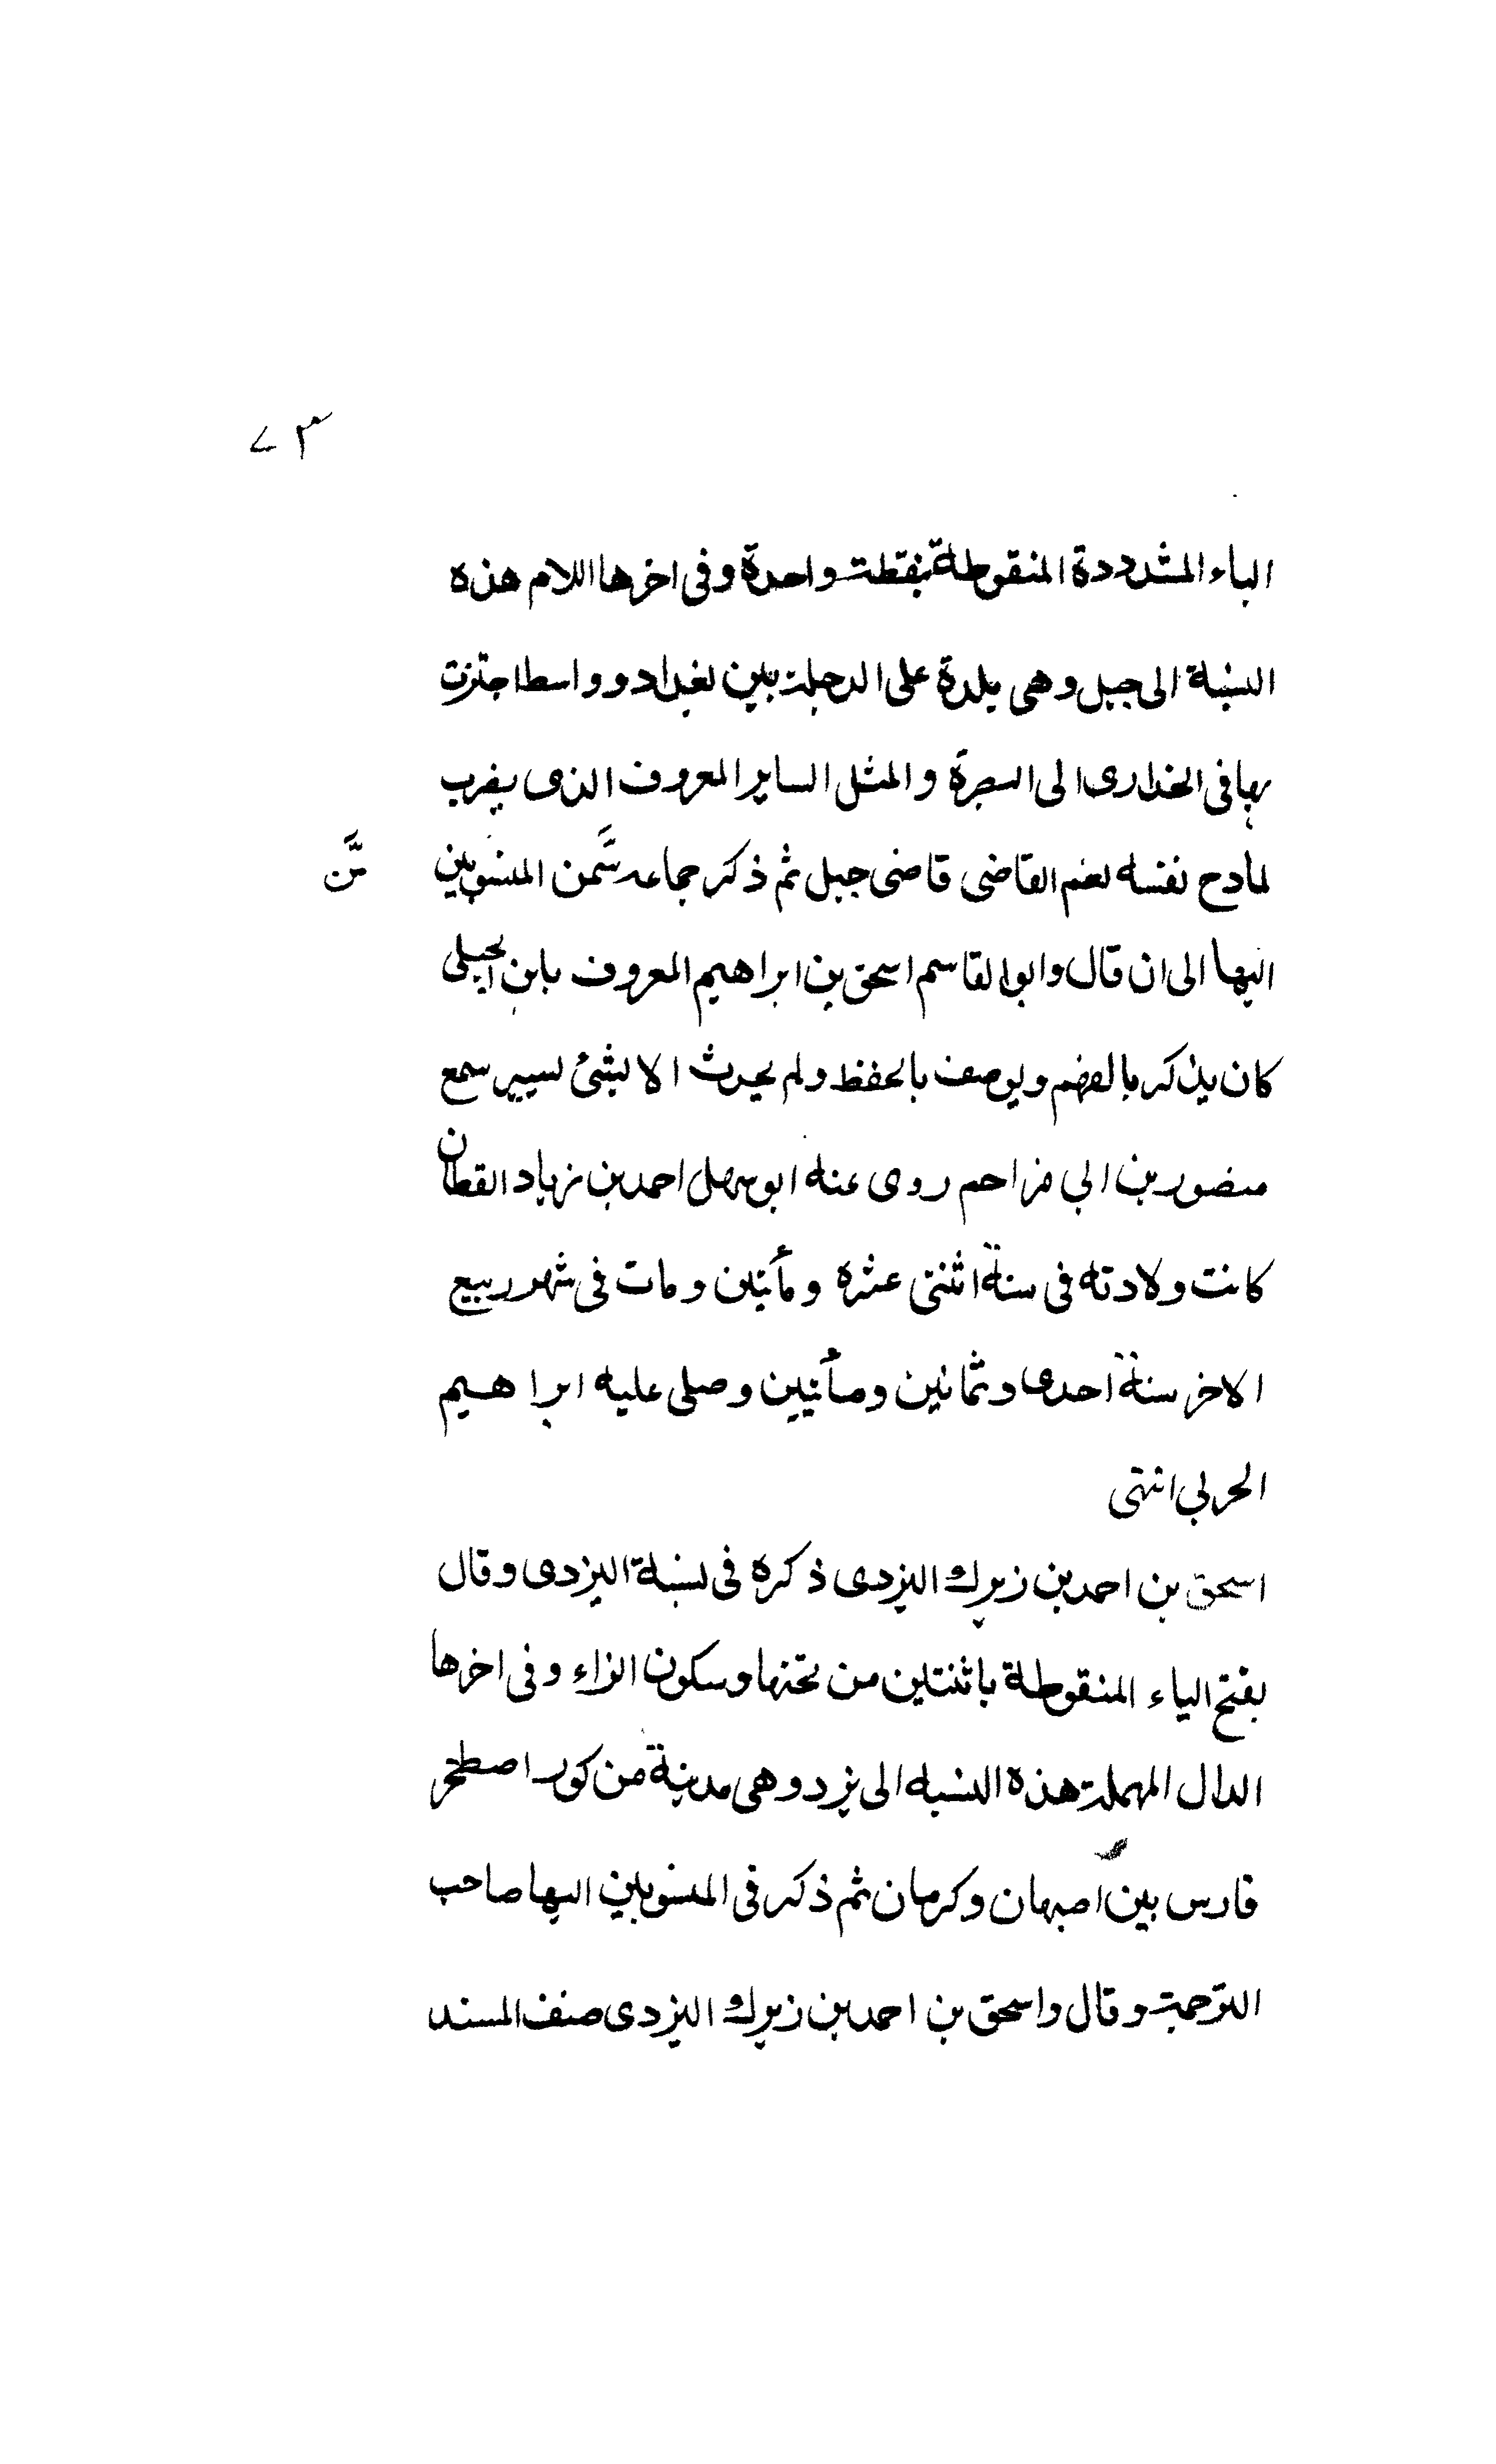 ٧٣
الباء المشددة المنقوطة بنقطة واحدة وفى اخرها اللام هذه
النسبة الى جبل وهى بلدة على الدجلة بين بغداد وواسط اجتزت
بها فى انحدارى الى البصرة والمثل الساير المعروف الذى يضرب
لمادح نفسه نعم القاضى قاضى جبل ثم ذكر جماعه من المنسوبين
من
اليها الى ان قال وابو القاسم اسحق بن ابراهيم المعروف بابن الجبلى
كان يذكر بالفهم ويوصف بالحفظ ولم يحدث الا بشئ يسير سمع
منصور بن ابى مزاحم روى عنه ابو سهل احمد بن زياد القطان
كانت ولادته فى سنة اثنتى عشره ومأتين ومات فى شهر ربيع
الاخر سنة احدى وثمانين ومأتين وصلى عليه ابراهيم
الحربى انتهى
اسحق بن احمد بن زيرك اليزدى ذكره فى نسبة اليزدى وقال
بفتح الياء المنقوطة باثنتين من تحتها وسكون الزاء وفى اخرها
الدال المهملة هذه النسبه الى يزد وهى مدينة من كور اصطخر
فارس بين اصبهان وكرمان ثم ذكر فى المنسوبين اليها صاحب
الترجمة وقال واسحق بن احمد بن زيرك اليزدى صنف المسند